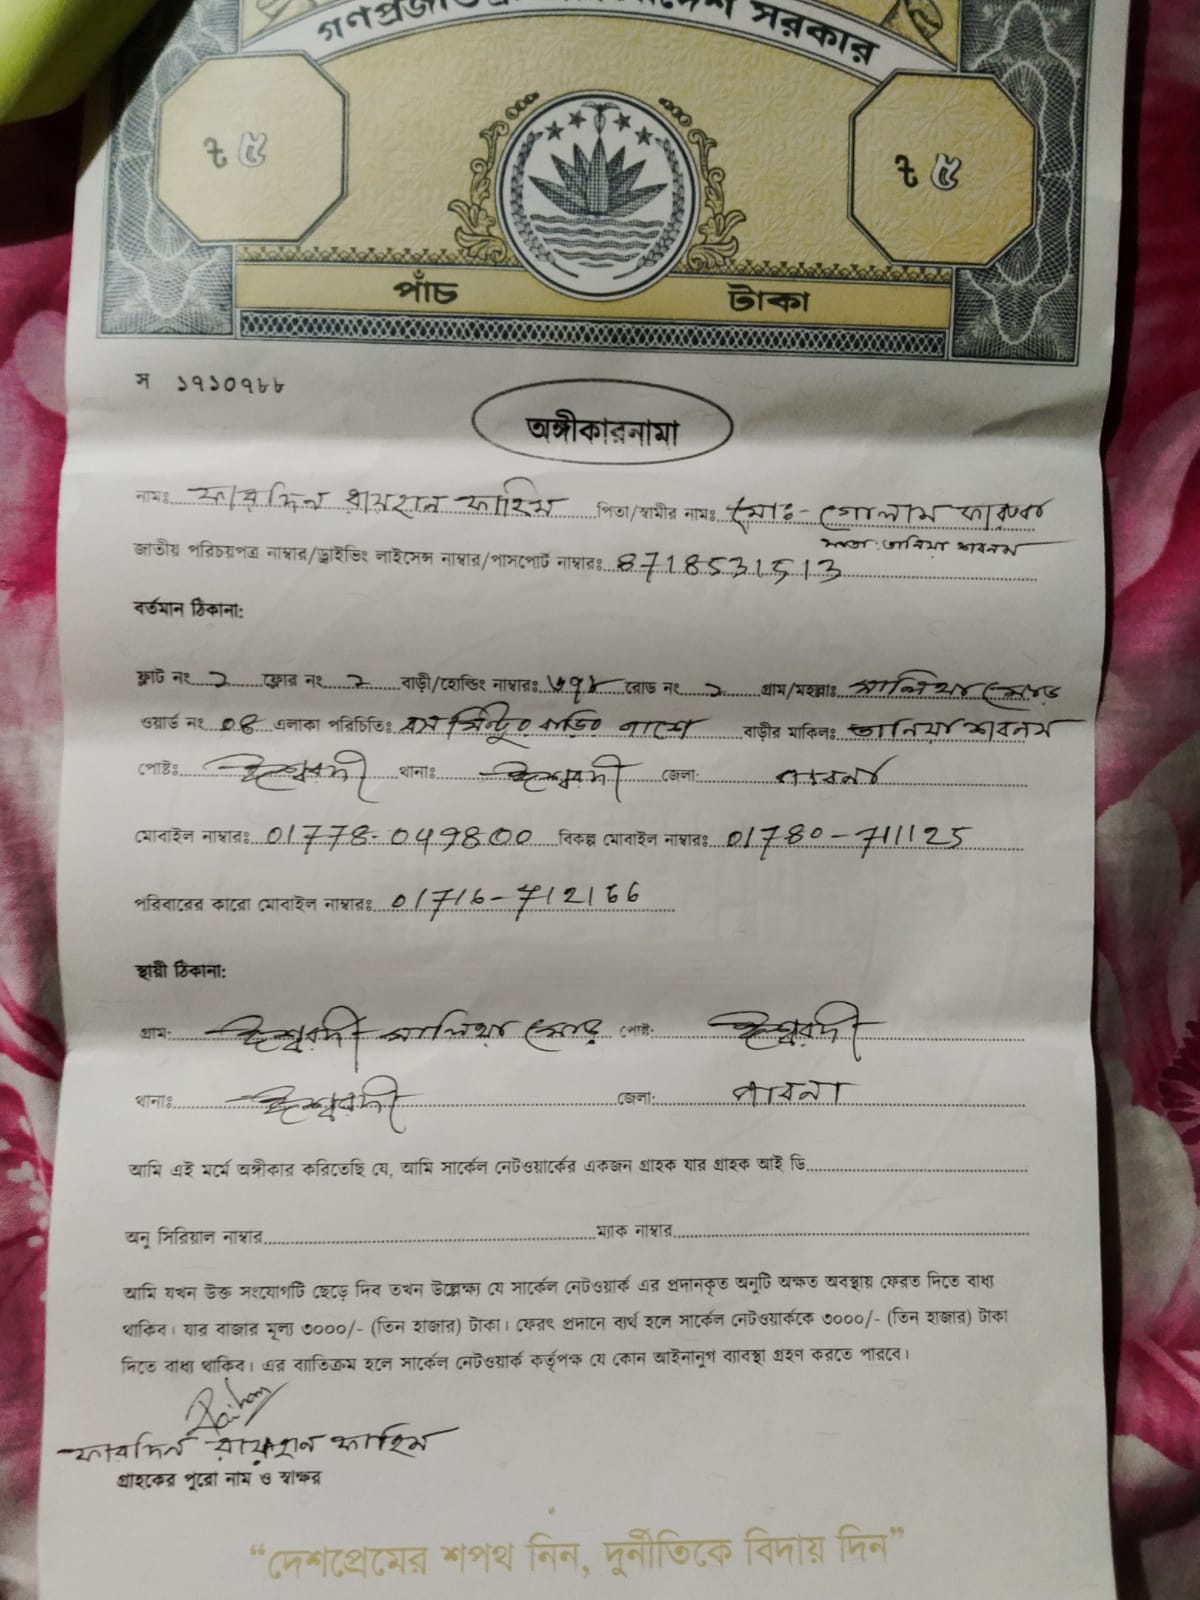 সরকার
৳ ৫
৳ ৫
পাঁচ টাকা
স ১৭১০৭৮৮
অঙ্গীকারনামা
নামঃ ফারদিন রায়হান ফাহিম পিতা/স্বামীর নামঃ মোঃ- গোলাম ফারুক
মাতা: তানিয়া শবনম
জাতীয় পরিচয়পত্র নাম্বার/ড্রাইভিং লাইসেন্স নাম্বার/পাসপোর্ট নাম্বারঃ 8718531513
বর্তমান ঠিকানা:
ফ্লাট নং ১ ফ্লোর নং ২ বাড়ী/হোল্ডিং নাম্বারঃ রোড নং ১ গ্রাম/মহল্লাঃ মোড়
ওয়ার্ড নং 08 এলাকা পরিচিতিঃ পাশে বাড়ীর মালিকঃ তানিয়া শবনম
পোষ্টঃ ঈশ্বরদী থানাঃ ঈশ্বরদী জেলা: পাবনা
মোবাইল নাম্বারঃ 01778-049800 বিকল্প মোবাইল নাম্বারঃ 01780-711125
পরিবারের কারো মোবাইল নাম্বারঃ 01716-712166
স্থায়ী ঠিকানা:
গ্রাম: ঈশ্বরদী মোড় পোষ্ট: ঈশ্বরদী
থানাঃ ঈশ্বরদী জেলা: পাবনা
আমি এই মর্মে অঙ্গীকার করিতেছি যে, আমি সার্কেল নেটওয়ার্কের একজন গ্রাহক যার গ্রাহক আই ডি
অনু সিরিয়াল নাম্বার ম্যাক নাম্বার
আমি যখন উক্ত সংযোগটি ছেড়ে দিব তখন উল্লেক্ষ্য যে সার্কেল নেটওয়ার্ক এর প্রদানকৃত অনুটি অক্ষত অবস্থায় ফেরত দিতে বাধ্য
থাকিব। যার বাজার মূল্য ৩০০০/- (তিন হাজার) টাকা। ফেরৎ প্রদানে ব্যর্থ হলে সার্কেল নেটওয়ার্ককে ৩০০০/- (তিন হাজার) টাকা
দিতে বাধ্য থাকিব। এর ব্যতিক্রম হলে সার্কেল নেটওয়ার্ক কর্তৃপক্ষ যে কোন আইনানুগ ব্যাবস্থা গ্রহণ করতে পারবে।
Raihan
ফারদিন রায়হান ফাহিম
গ্রাহকের পুরো নাম ও স্বাক্ষর
“দেশপ্রেমের শপথ নিন, দুর্নীতিকে বিদায় দিন”